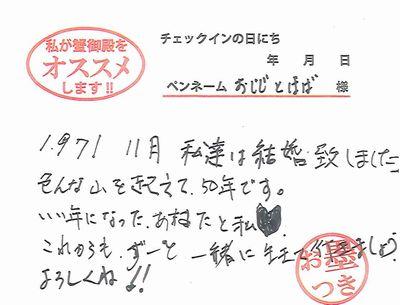 私が蟹御殿を
オススメ
します!!
チェックインの日にち
年 月 日
ペンネーム おじじとばば 様
1.971 11月 私達は結婚致しました
色んな山を越えて、50年です。
いい年になった、あなたと私♥
これからも、ずーと 一緒に 生きて行きましょう
よろしくね!!
お墨
つき